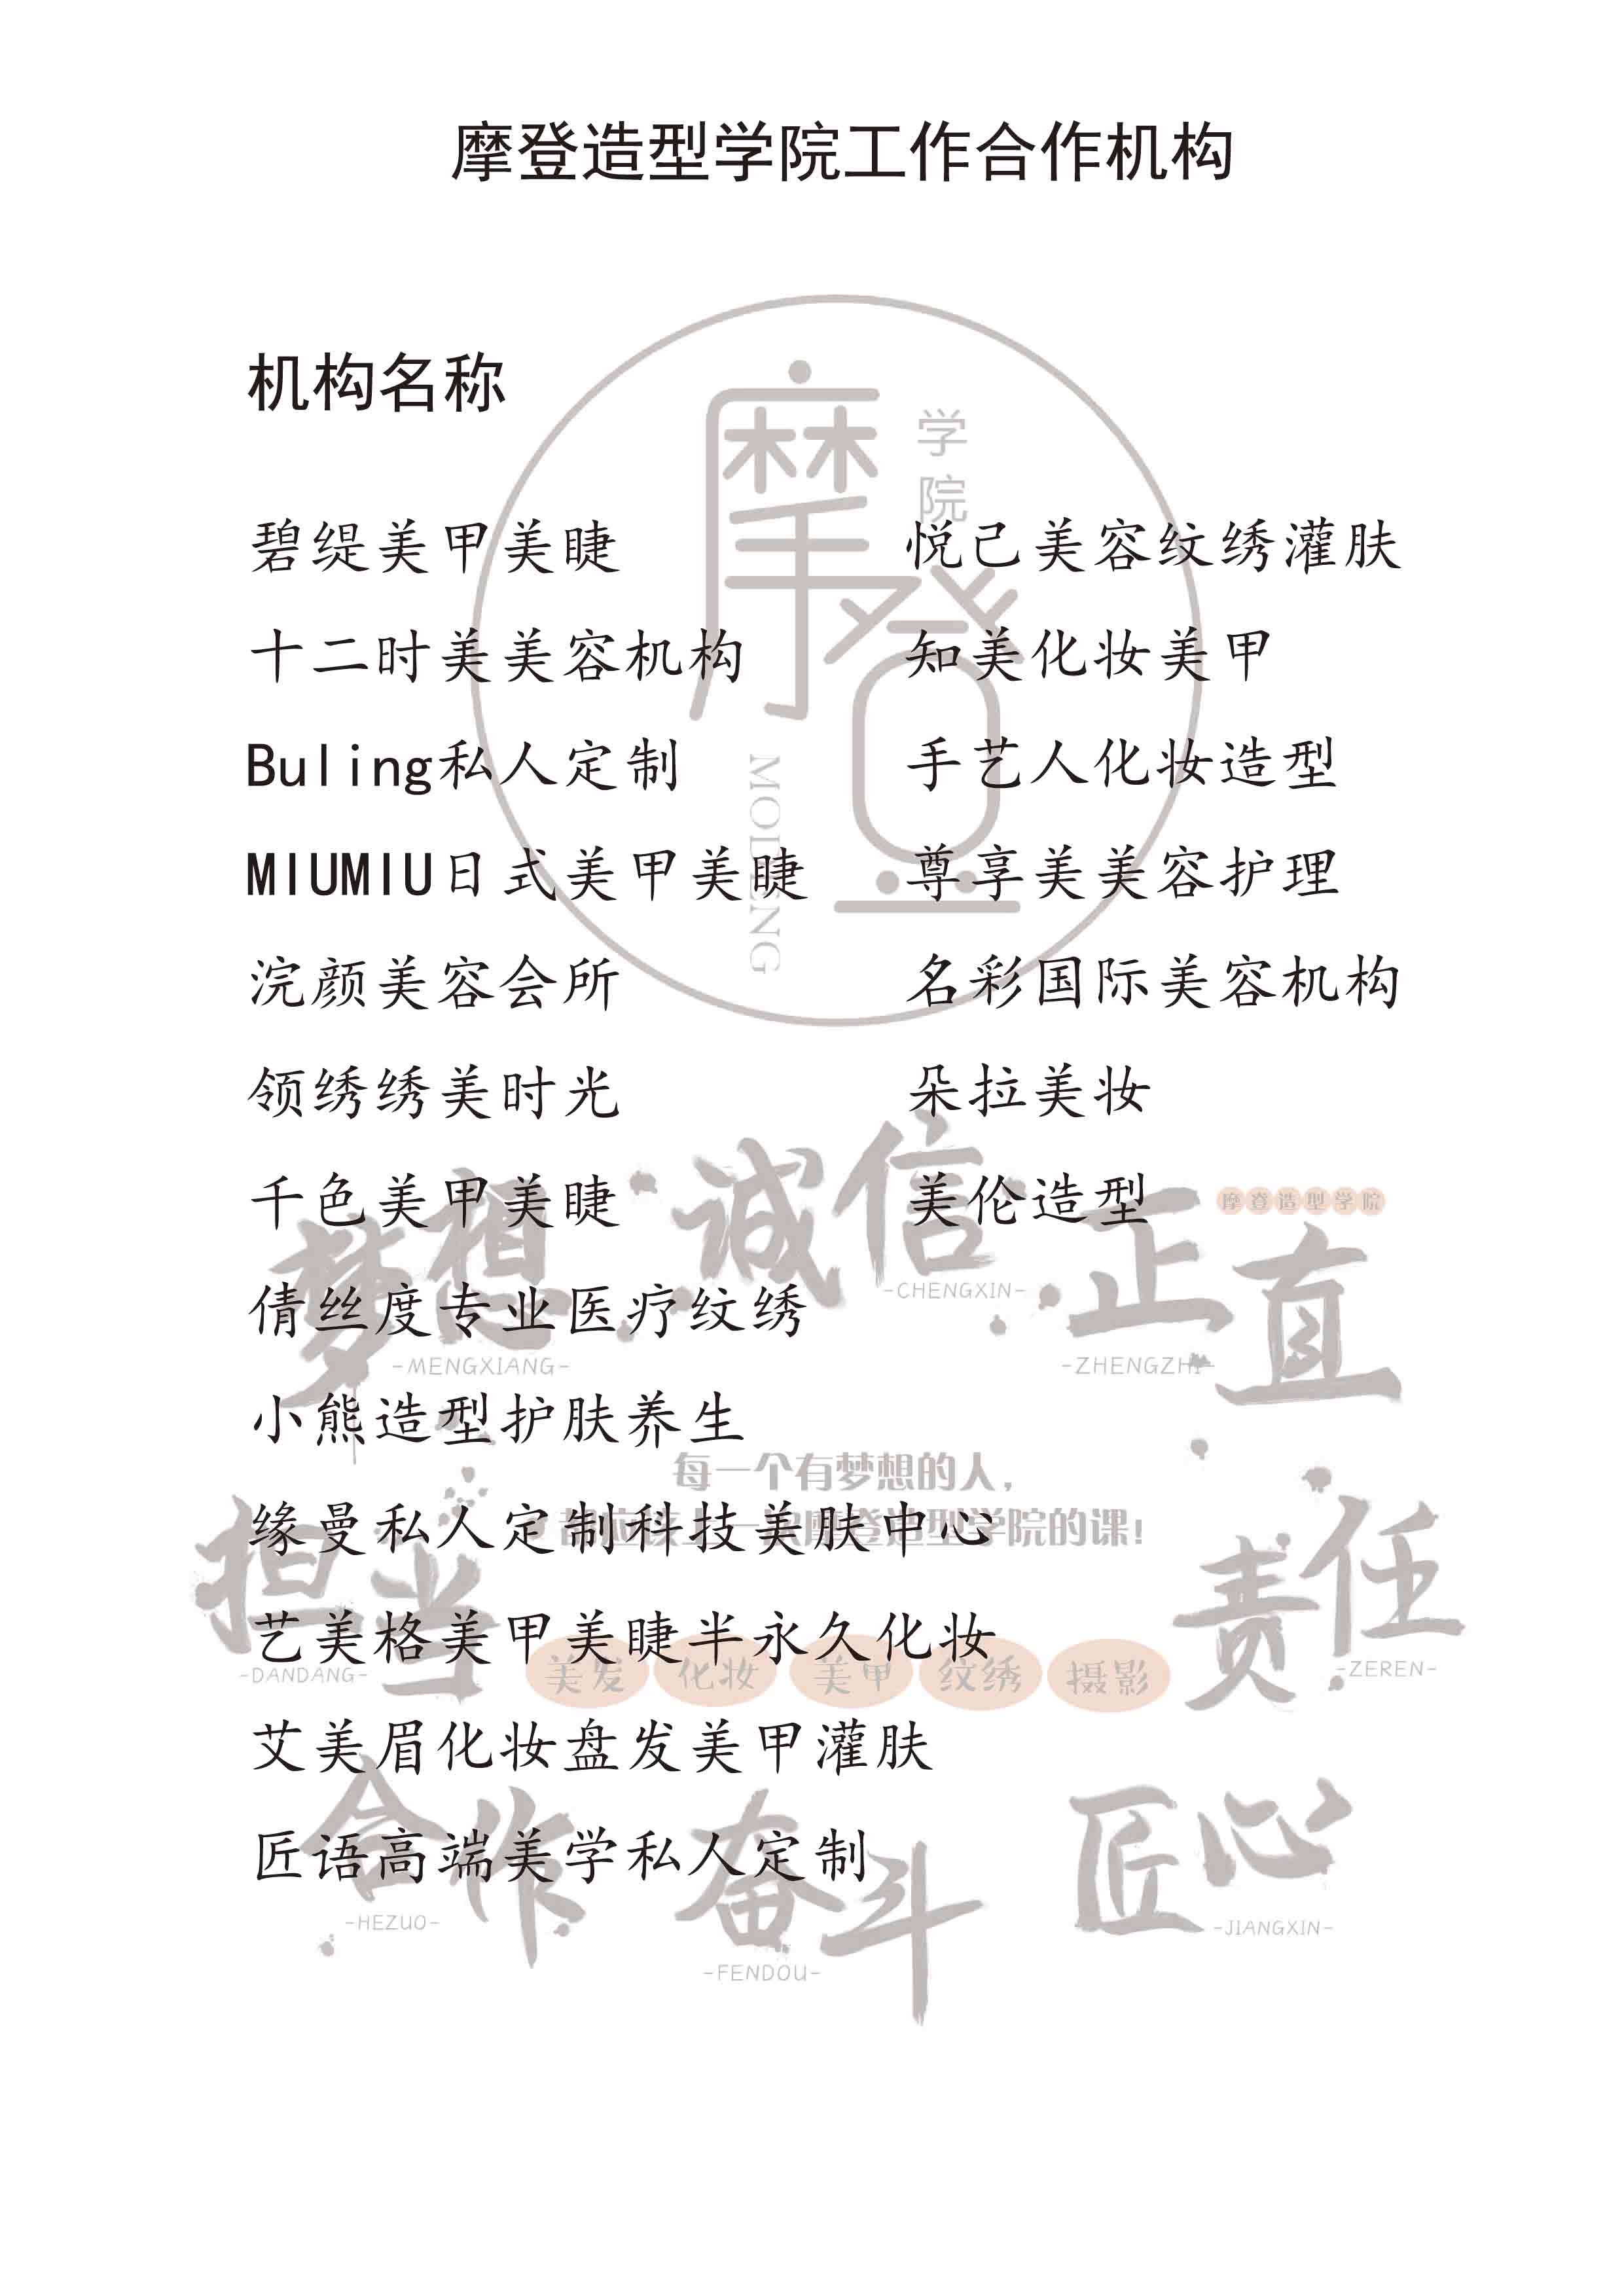 摩登造型学院工作合作机构
机构名称
学院
摩登
MODENG
碧缇美甲美睫
十二时美美容机构
Buling私人定制
MIUMIU日式美甲美睫
浣颜美容会所
领绣绣美时光
千色美甲美睫
倩丝度专业医疗纹绣
小熊造型护肤养生
缘曼私人定制科技美肤中心
艺美格美甲美睫半永久化妆
艾美眉化妆盘发美甲灌肤
匠语高端美学私人定制
悦己美容纹绣灌肤
知美化妆美甲
手艺人化妆造型
尊享美美容护理
名彩国际美容机构
朵拉美妆
美伦造型
摩登造型学院
梦想
-MENGXIANG-
诚信
-CHENGXIN-
正直
-ZHENGZHI-
每一个有梦想的人，
都应该上一次摩登造型学院的课！
担当
-DANDANG-
责任
-ZEREN-
美发 化妆 美甲 纹绣 摄影
合作
-HEZUO-
奋斗
-FENDOU-
匠心
-JIANGXIN-